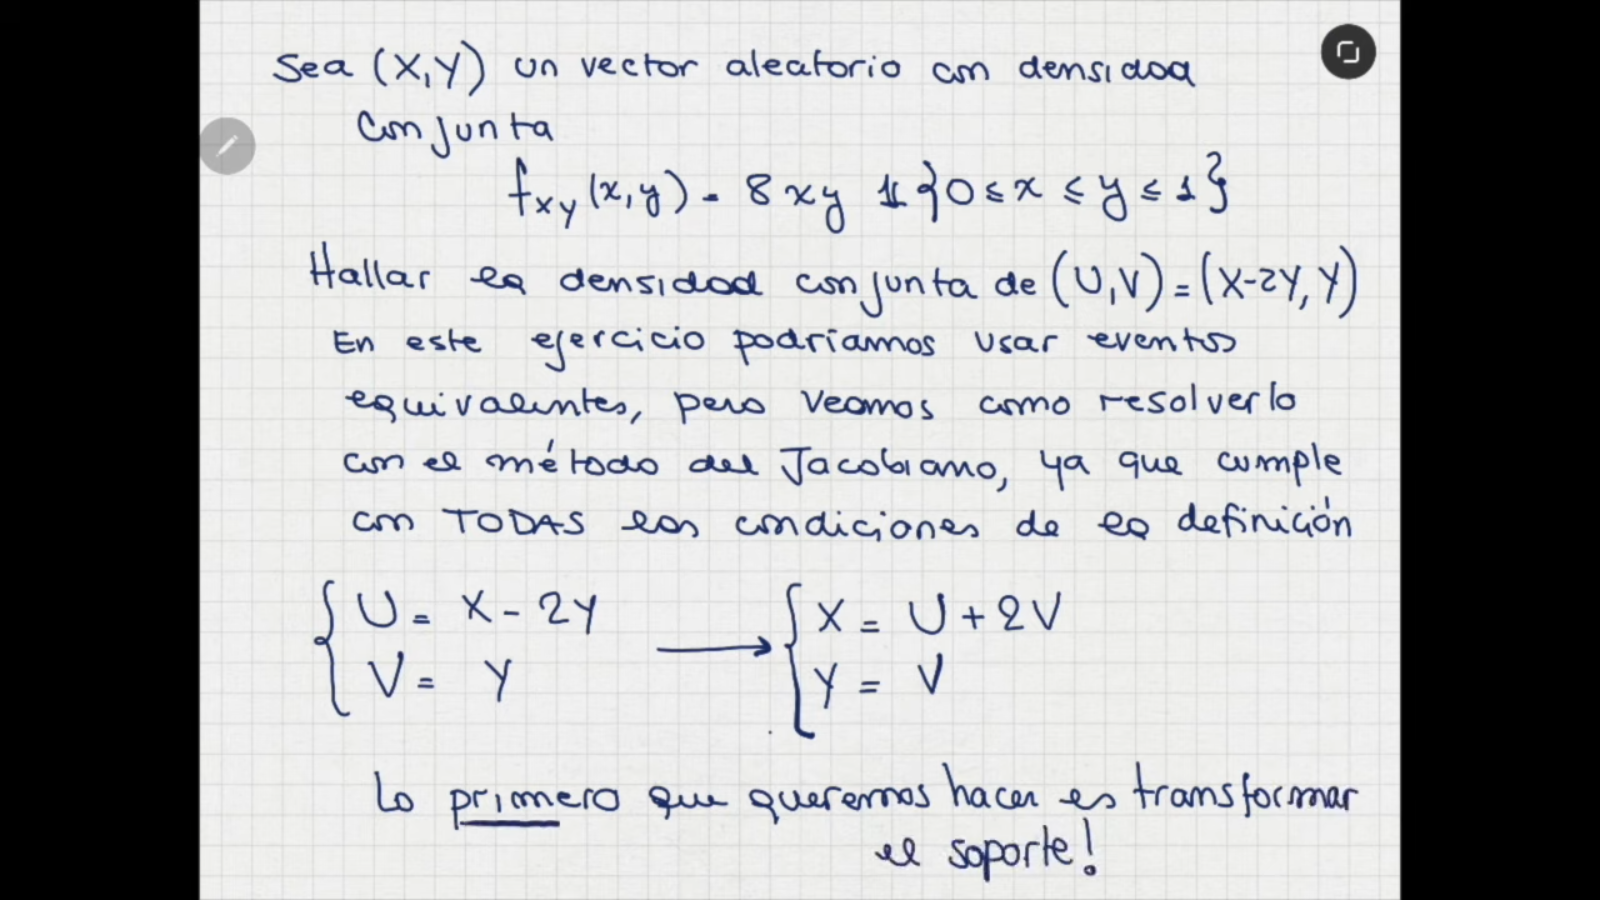 Sea (X,Y) un vector aleatorio con densidad
Conjunta
fXY(x,y) = 8xy 𝟙{0 ≤ x ≤ y ≤ 1}
Hallar la densidad conjunta de (U,V) = (X-2Y, Y)
En este ejercicio podríamos usar eventos
equivalentes, pero veamos como resolverlo
con el método del Jacobiano, ya que cumple
con TODAS las condiciones de la definición
{ U = X - 2Y → { X = U + 2V
V = Y Y = V
Lo primero que queremos hacer es transformar
el soporte!